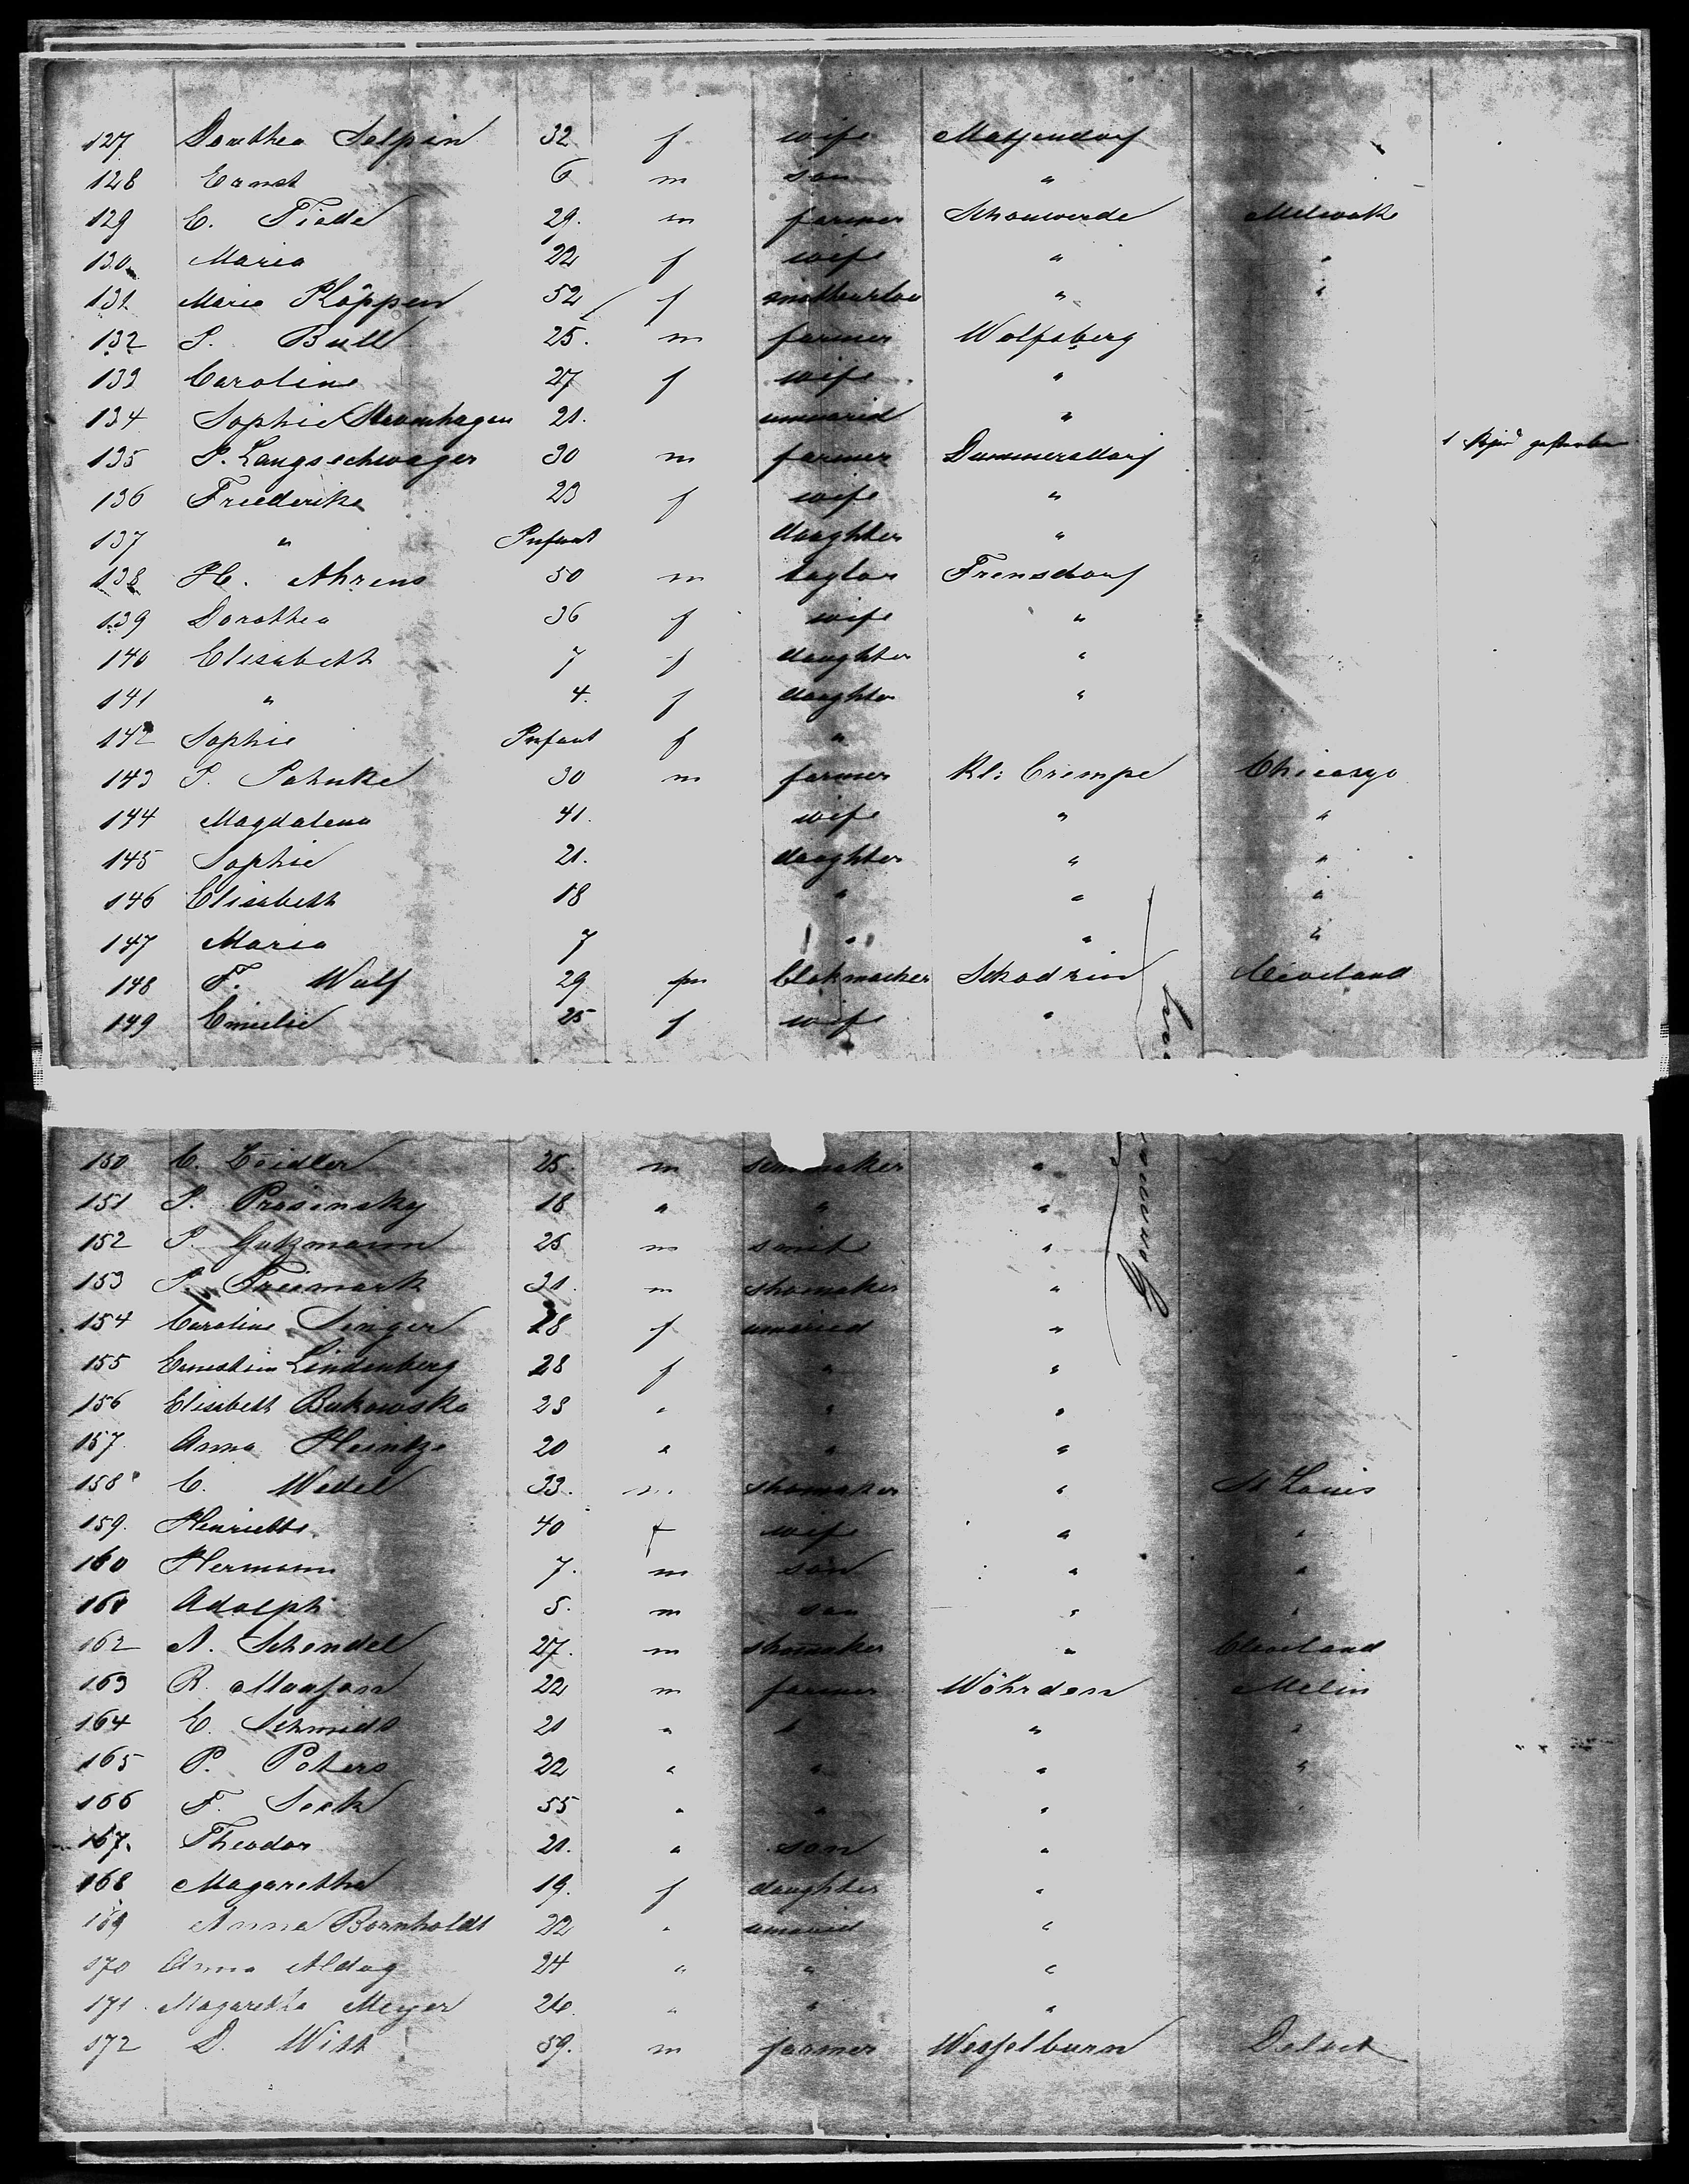 127 Dorothea Selpin 32 f wife Matzendorf
128 Ernst 6 m son "
129 C. Tiede 29. m farmer Schonwerde Milwake
130 Maria 22 f wife " "
131 Maria Köppen 52 f motherlaw " "
132 P. Bull 25. m farmer Wolfsberg
133 Caroline 27 f wife "
134 Sophie 21. unmarid "
135 P. Langschwager 30 m farmer Dummersdorf 1 gestorben
136 Friederike 23 f wife "
137 " Infant daughter "
138 H. Ahrens 50 m taylor Frensdorf
139 Dorothea 36 f wife "
140 Elisabeth 7 f daughter "
141 " 4. f daughter "
142 Sophie Infant f "
143 P. Pahnke 30 m farmer Kl: Crempe Chicasgo
144 Magdalena 41. wife " "
145 Sophie 21. daughter " "
146 Elisabeth 18 " " "
147 Maria 7 " " "
148 F. Wulf 29 m Clokmacher Schodzin Cleveland
149 Emilie 25 f wife "
150 C. Zeidler 25. m "
151 P. Prosinsky 18 " " "
152 P. Gutzmann 25 m smit "
153 P. Freimark 31. m shomaker "
154 Caroline Singer 28 f unmaried "
155 Ernestine Lindenberg 28 f " "
156 Elisabeth Bukowska 23 " " "
157. Anna Heintze 20 " " "
158 C. Wedel 33. m shomaker " St Louis
159. Henriette 40 f wife " "
160 Hermann 7. m son " "
161 Adolph 5. m son " "
162 A. Schendel 27. m shomaker " Cleveland
163 R. 22 m farmer Wöhrden Melin
164 C. Schmidt 21 " " " "
165 P. Peters 22 " " " "
166 F. Seek 55 " " " "
167. Theodor 21. " son "
168 Magaretha 19. f daughter "
169 Anna Bornholdt 22 " unmarid "
170 Anna Aldag 24 " " "
171. Magaretha Meyer 26. " " "
172 D. Witt 59. m farmer Wesselburn Detroit
Germany